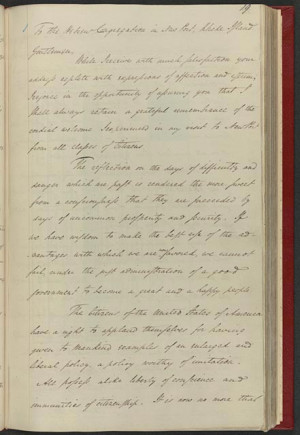 19
To the Hebrew Congregation in New Port, Rhode Island
Gentlemen.
While I receive with much satisfaction your
address replete with expressions of affection and esteem,
I rejoice in the opportunity of assuring you that I
shall always retain a grateful remembrance of the
cordial welcome I experienced in my visit to New Port
from all classes of Citizens.
The reflection on the days of difficulty and
danger which are past is rendered the more sweet
from a consciousness that they are succeeded by
days of uncommon prosperity and security. If
we have wisdom to make the best use of the ad-
vantages with which we are favored, we cannot
fail, under the just administration of a good
government to become a great and a happy people
The Citizens of the United States of America
have a right to applaud themselves for having
given to mankind examples of an enlarged and
liberal policy, a policy worthy of imitation.
All possess alike liberty of conscience and
immunities of citizenship. It is now no more that